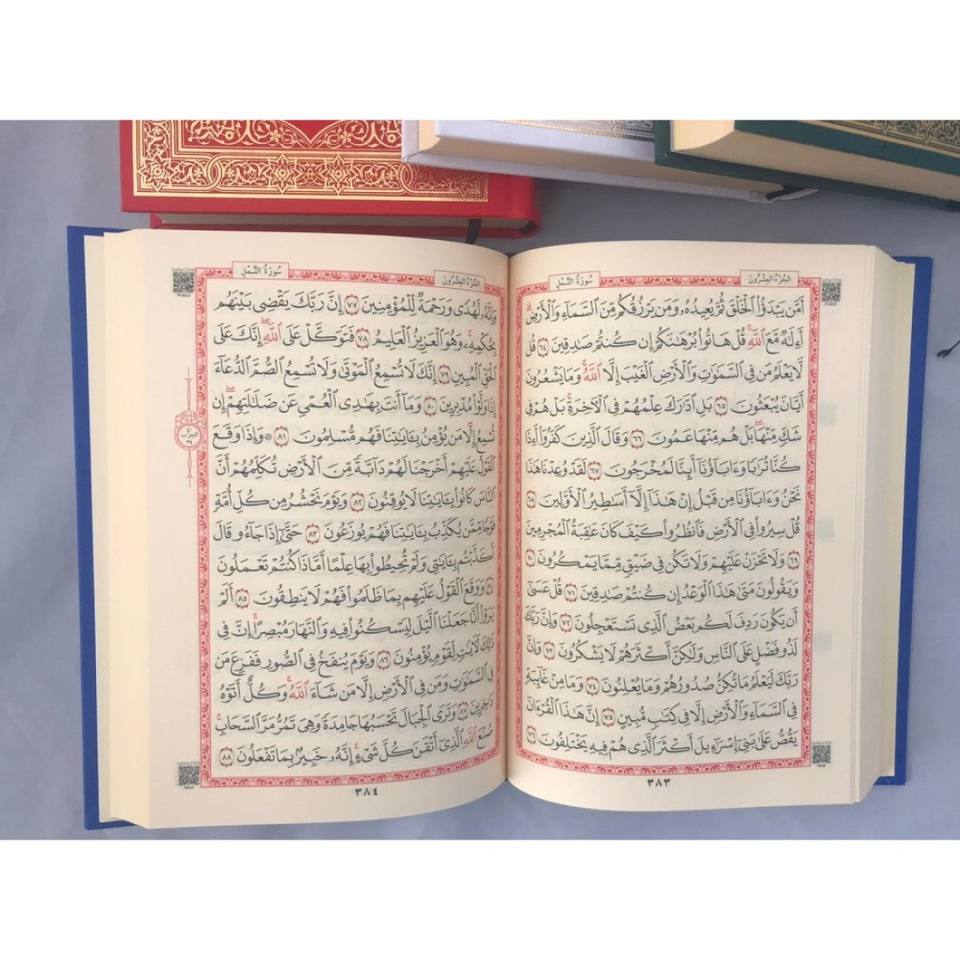 الجُزْءُ العِشْرُونَ سُورَةُ النَّمْلِ
أَمَّن يَبْدَؤُا۟ ٱلْخَلْقَ ثُمَّ يُعِيدُهُۥ وَمَن يَرْزُقُكُم مِّنَ ٱلسَّمَآءِ وَٱلْأَرْضِۗ
أَءِلَٰهٌ مَّعَ ٱللَّهِۚ قُلْ هَاتُوا۟ بُرْهَٰنَكُمْ إِن كُنتُمْ صَٰدِقِينَ ٦٤ قُل
لَّا يَعْلَمُ مَن فِى ٱلسَّمَٰوَٰتِ وَٱلْأَرْضِ ٱلْغَيْبَ إِلَّا ٱللَّهُۚ وَمَا يَشْعُرُونَ
أَيَّانَ يُبْعَثُونَ ٦٥ بَلِ ٱدَّٰرَكَ عِلْمُهُمْ فِى ٱلْءَاخِرَةِۚ بَلْ هُمْ فِى
شَكٍّ مِّنْهَاۖ بَلْ هُم مِّنْهَا عَمُونَ ٦٦ وَقَالَ ٱلَّذِينَ كَفَرُوٓا۟ أَءِذَا
كُنَّا تُرَٰبًا وَءَابَآؤُنَآ أَئِنَّا لَمُخْرَجُونَ ٦٧ لَقَدْ وُعِدْنَا هَٰذَا
نَحْنُ وَءَابَآؤُنَا مِن قَبْلُ إِنْ هَٰذَآ إِلَّآ أَسَٰطِيرُ ٱلْأَوَّلِينَ ٦٨
قُلْ سِيرُوا۟ فِى ٱلْأَرْضِ فَٱنظُرُوا۟ كَيْفَ كَانَ عَٰقِبَةُ ٱلْمُجْرِمِينَ
٦٩ وَلَا تَحْزَنْ عَلَيْهِمْ وَلَا تَكُن فِى ضَيْقٍ مِّمَّا يَمْكُرُونَ ٧٠
وَيَقُولُونَ مَتَىٰ هَٰذَا ٱلْوَعْدُ إِن كُنتُمْ صَٰدِقِينَ ٧١ قُلْ عَسَىٰٓ
أَن يَكُونَ رَدِفَ لَكُم بَعْضُ ٱلَّذِى تَسْتَعْجِلُونَ ٧٢ وَإِنَّ رَبَّكَ
لَذُو فَضْلٍ عَلَى ٱلنَّاسِ وَلَٰكِنَّ أَكْثَرَهُمْ لَا يَشْكُرُونَ ٧٣ وَإِنَّ
رَبَّكَ لَيَعْلَمُ مَا تُكِنُّ صُدُورُهُمْ وَمَا يُعْلِنُونَ ٧٤ وَمَا مِنْ غَآئِبَةٍ
فِى ٱلسَّمَآءِ وَٱلْأَرْضِ إِلَّا فِى كِتَٰبٍ مُّبِينٍ ٧٥ إِنَّ هَٰذَا ٱلْقُرْءَانَ
يَقُصُّ عَلَىٰ بَنِىٓ إِسْرَٰٓءِيلَ أَكْثَرَ ٱلَّذِى هُمْ فِيهِ يَخْتَلِفُونَ ٧٦
٣٨٣
الجُزْءُ العِشْرُونَ سُورَةُ النَّمْلِ
وَإِنَّهُۥ لَهُدًى وَرَحْمَةٌ لِّلْمُؤْمِنِينَ ٧٧ إِنَّ رَبَّكَ يَقْضِى بَيْنَهُم
بِحُكْمِهِۦۚ وَهُوَ ٱلْعَزِيزُ ٱلْعَلِيمُ ٧٨ فَتَوَكَّلْ عَلَى ٱللَّهِۖ إِنَّكَ عَلَى
ٱلْحَقِّ ٱلْمُبِينِ ٧٩ إِنَّكَ لَا تُسْمِعُ ٱلْمَوْتَىٰ وَلَا تُسْمِعُ ٱلصُّمَّ ٱلدُّعَآءَ
إِذَا وَلَّوْا۟ مُدْبِرِينَ ٨٠ وَمَآ أَنتَ بِهَٰدِى ٱلْعُمْىِ عَن ضَلَٰلَتِهِمْۖ إِن
تُسْمِعُ إِلَّا مَن يُؤْمِنُ بِـَٔايَٰتِنَا فَهُم مُّسْلِمُونَ ٨١ ۞ وَإِذَا وَقَعَ
ٱلْقَوْلُ عَلَيْهِمْ أَخْرَجْنَا لَهُمْ دَآبَّةً مِّنَ ٱلْأَرْضِ تُكَلِّمُهُمْ أَنَّ
ٱلنَّاسَ كَانُوا۟ بِـَٔايَٰتِنَا لَا يُوقِنُونَ ٨٢ وَيَوْمَ نَحْشُرُ مِن كُلِّ أُمَّةٍ
فَوْجًا مِّمَّن يُكَذِّبُ بِـَٔايَٰتِنَا فَهُمْ يُوزَعُونَ ٨٣ حَتَّىٰٓ إِذَا جَآءُو قَالَ
أَكَذَّبْتُم بِـَٔايَٰتِى وَلَمْ تُحِيطُوا۟ بِهَا عِلْمًا أَمَّاذَا كُنتُمْ تَعْمَلُونَ
٨٤ وَوَقَعَ ٱلْقَوْلُ عَلَيْهِم بِمَا ظَلَمُوا۟ فَهُمْ لَا يَنطِقُونَ ٨٥ أَلَمْ
يَرَوْا۟ أَنَّا جَعَلْنَا ٱلَّيْلَ لِيَسْكُنُوا۟ فِيهِ وَٱلنَّهَارَ مُبْصِرًاۚ إِنَّ فِى
ذَٰلِكَ لَءَايَٰتٍ لِّقَوْمٍ يُؤْمِنُونَ ٨٦ وَيَوْمَ يُنفَخُ فِى ٱلصُّورِ فَفَزِعَ مَن
فِى ٱلسَّمَٰوَٰتِ وَمَن فِى ٱلْأَرْضِ إِلَّا مَن شَآءَ ٱللَّهُۚ وَكُلٌّ أَتَوْهُ
دَٰخِرِينَ ٨٧ وَتَرَى ٱلْجِبَالَ تَحْسَبُهَا جَامِدَةً وَهِىَ تَمُرُّ مَرَّ ٱلسَّحَابِۚ
صُنْعَ ٱللَّهِ ٱلَّذِىٓ أَتْقَنَ كُلَّ شَىْءٍۚ إِنَّهُۥ خَبِيرٌۢ بِمَا تَفْعَلُونَ ٨٨
الحزب
٣٩
٣٨٤